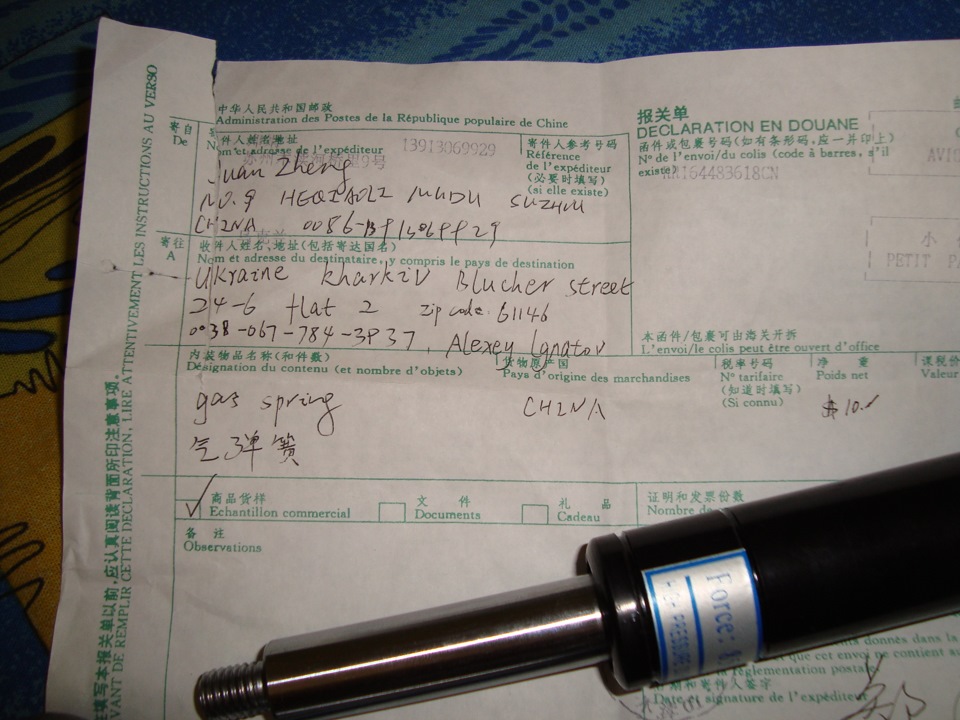 中华人民共和国邮政
Administration des Postes de la République populaire de Chine
报关单
DECLARATION EN DOUANE
函件或包裹号码(如有条形码,应一并印上)
N° de l'envoi/du colis (code à barres, s'il existe)
RR164483618CN
AVIO
小
PETIT PA
寄自
De
件人姓名地址
Nom et adresse de l'expéditeur
13913069929
9号
寄件人参考号码
Référence
de l'expéditeur
(必要时填写)
(si elle existe)
Zheng
NO.9 HEQIAOLI MUDU SUZHOU
CHINA 0086-13913069929
寄往
A
收件人姓名,地址(包括寄达国名)
Nom et adresse du destinataire, y compris le pays de destination
Ukraine kharkiv Blucher street
24-6 flat 2 zip code: 61146
0038-067-784-3937, Alexey Ignatov
本函件/包裹可由海关开拆
L'envoi/le colis peut être ouvert d'office
内装物品名称(和件数)
Désignation du contenu (et nombre d'objets)
货物原产国
Pays d'origine des marchandises
税率号码
N° tarifaire
(知道时填写)
(Si connu)
净 重
Poids net
课税价
Valeur
gas spring
气弹簧
CHINA
$10.
商品货样
Echantillon commercial
文 件
Documents
礼 品
Cadeau
证明和发票份数
Nombre de
备 注
Observations
Force:
données dans la
que cet envoi ne contient au
réglementation postale
日期和寄件人签字
Date et signature de l'expéditeur
填写本报关单以前,应认真阅读背面所印注意事项。
AVANT DE REMPLIR CETTE DECLARATION, LIRE ATTENTIVEMENT LES INSTRUCTIONS AU VERSO